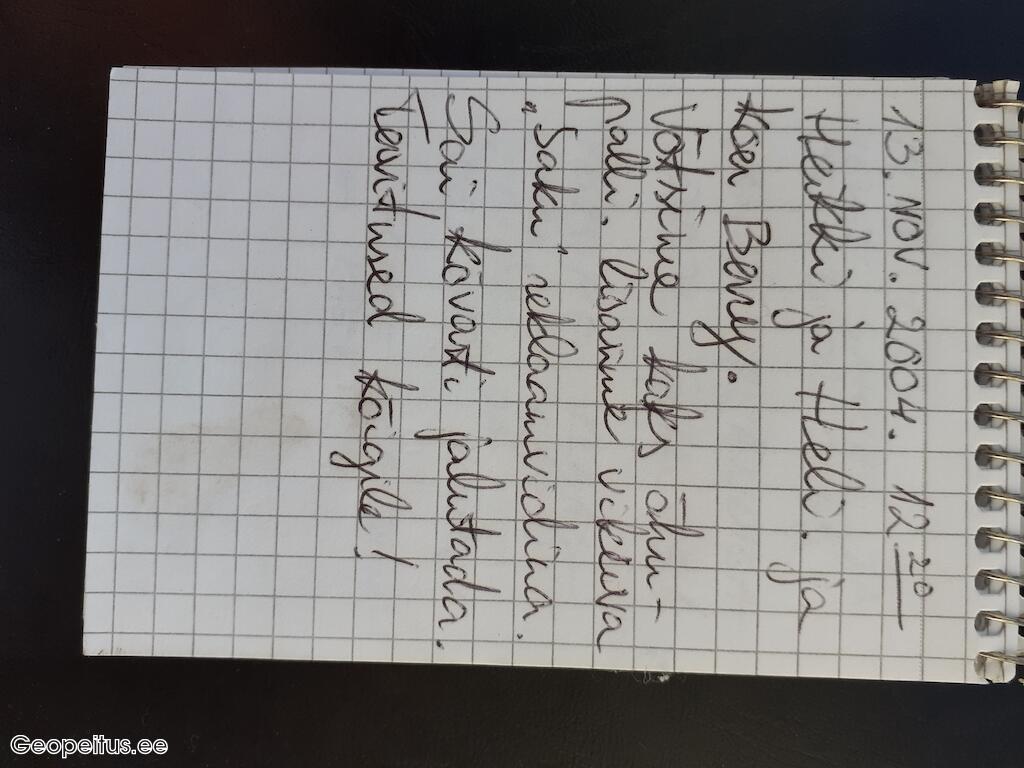 13. NOV. 2004. 12 20
Heikki ja Heli. ja
koer Benny.
Võtsime kaks õhu-
palli. lisasime vikeuva
"Saku" reklaamvidina.
Sai kõvasti jalutada.
Tervitused kõigile!
Geopeitus.ee